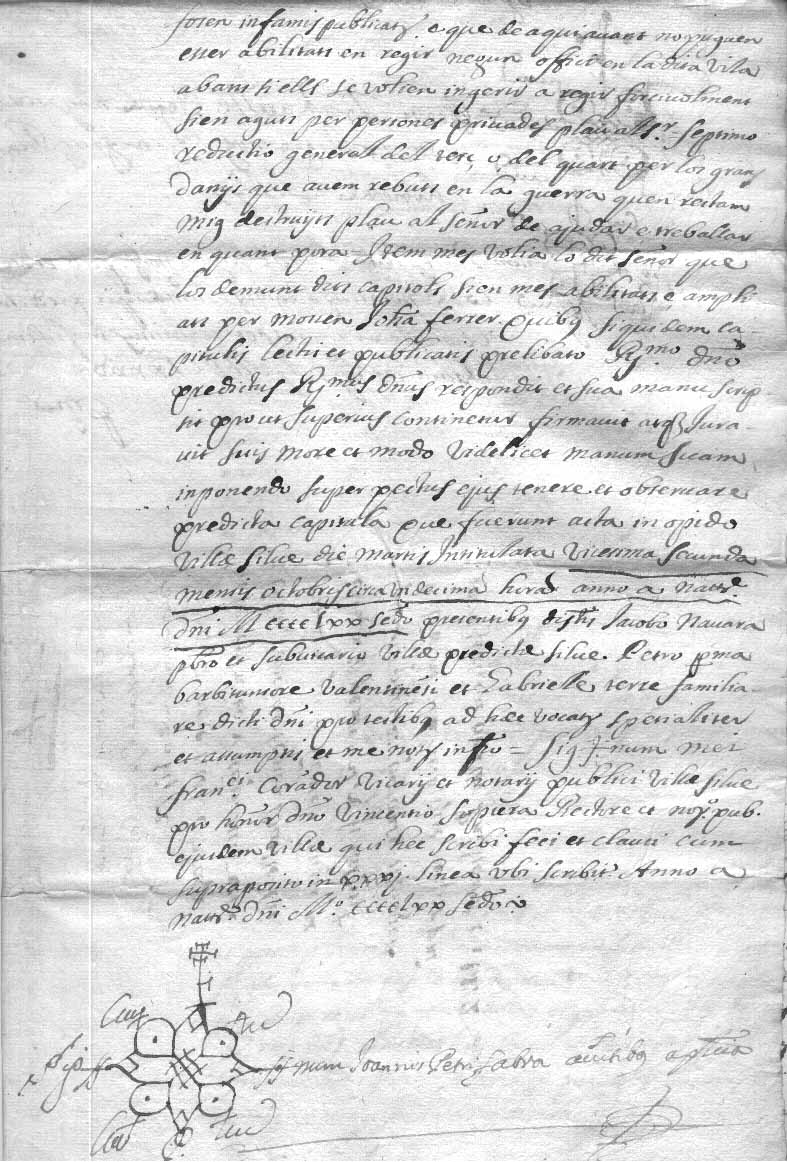 fosen infamis publicats. e que de aqui auant no puguen
esser abilitats en regir negun offici en la dita vila
abans si ells se volien ingerir a regir
sien aguts per persones priuades plau al Sr. = Septimo
reductio general del terç, o del quart per los grans
danys que auem rebuts en la guerra quen restam
mig destruyts plau al señor de ajudar e treballar
en quant pora = Item mes volia lo dit señor que
los demunt dits capitols sien mes abilitats e ampli
ats per mossen Joha ferrer. Quibus siquidem ca-
pitulis lectis et publicatis prelibato Rmo. dno
predictus Rmus dnus respondit et sua manu scrip-
sit prout superius continetur firmauit atq3 Jura-
uit suis more et modo videlicet manum suam
inponendo super pectus ejus tenere et obseruare
predicta capitula que fuerunt acta in opido
Villæ silue die martis Intitulata Vicesima secunda
mensis octobris circa undecima hora anno a Natte.
dni M cccc lxx sedo presentibus disctis Jacobo Nauara
pbro et subuicario villæ predictæ silue. Petro
barbitonsore Valentineti et Gabrielle terre familia-
re dicti dni pro testibus ad hæc vocatis specialiter
et assumptis et me noty infro = Sig num mei
franci. Corader Vicarij et notarij publici villæ silue
pro honor dno Vincentio sorpiera Rectore et noy. pub.
ejusdem villæ qui hec scribi feci et clausi cum
supraposito in xxxj. linea vbi scribitr. Anno a
natte. dni Mo. cccclxx sedo
Sig num Joannis Petri Sabra auctibus aplica